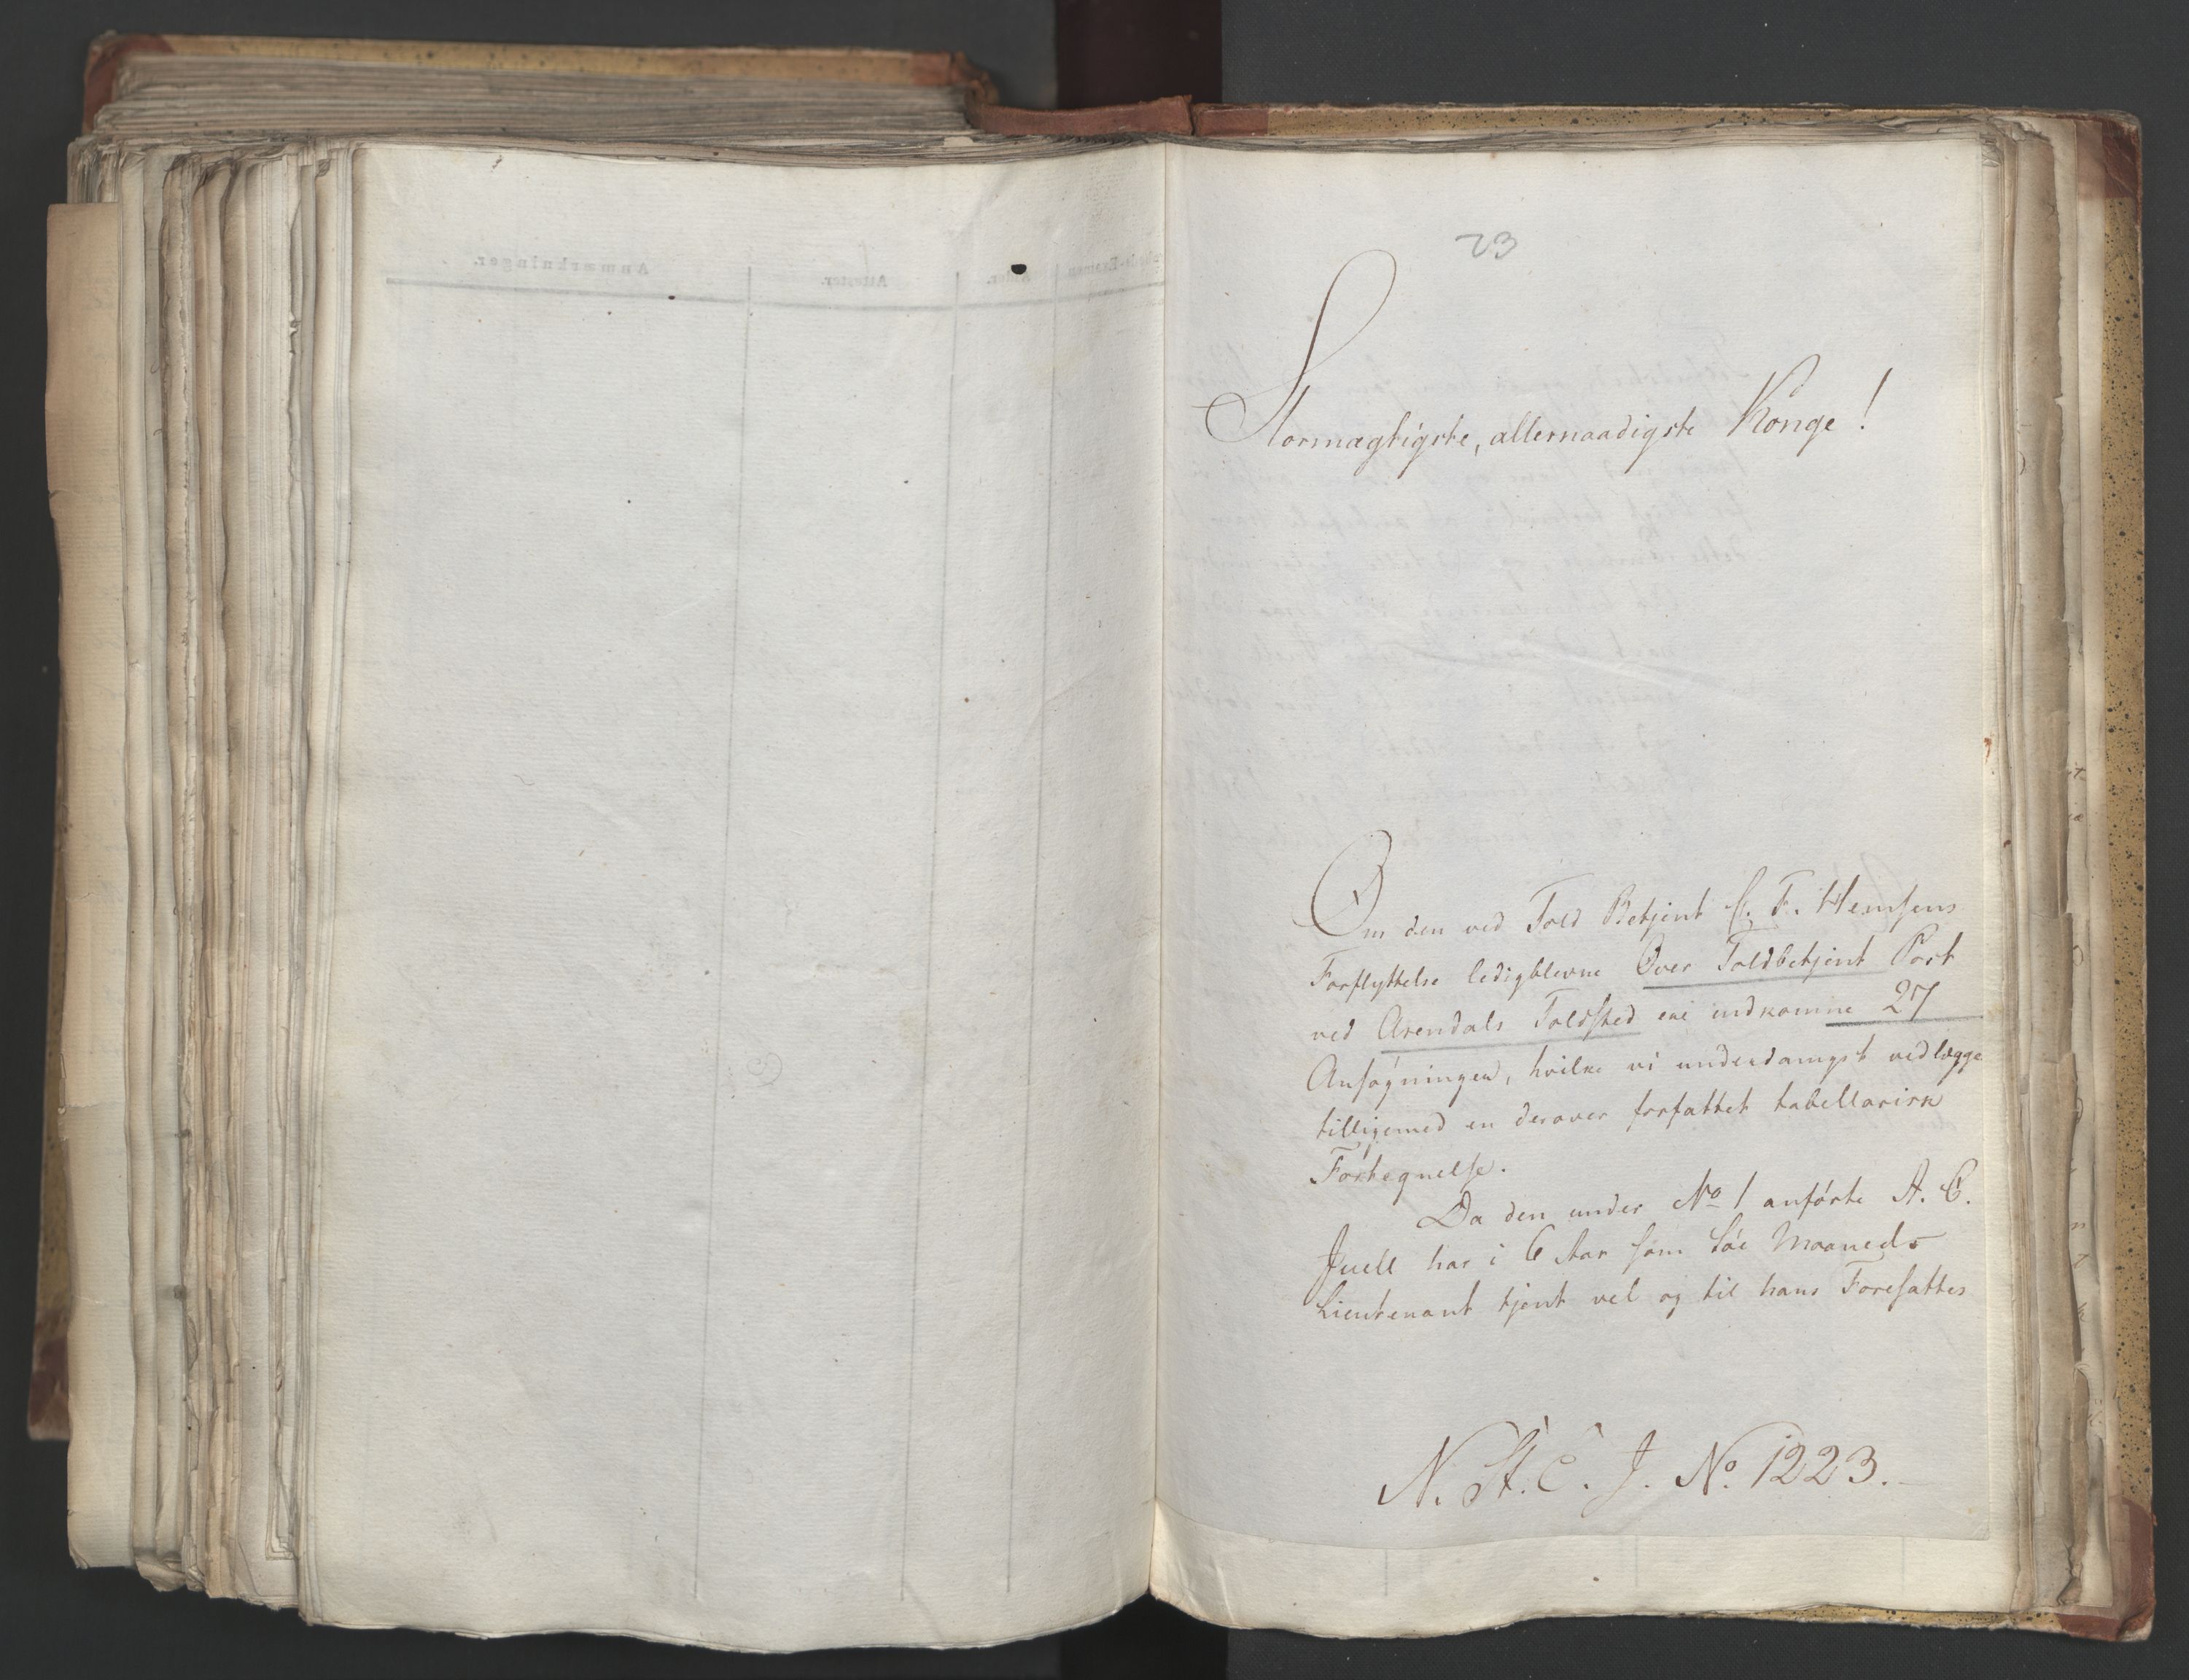 23
Stormægtigste, allernaadigste Konge!
Om den ved Told Betjent C. F. Hemsens
Forflyttelse ledigblevne Over Toldbetjent Post
ved Arendals Toldsted ere indkomne 27
Ansøgninger, hvilke vi underdanigst vedlægge
tilligemed en derover forfattet tabellarisk
Fortegnelse.
Da den under No 1 anførte A. C.
Juell har i 6 Aar som Søe Maaneds
Lieutenant tjent vel og til hans Foresattes
N. St. C. J. No. 1223.